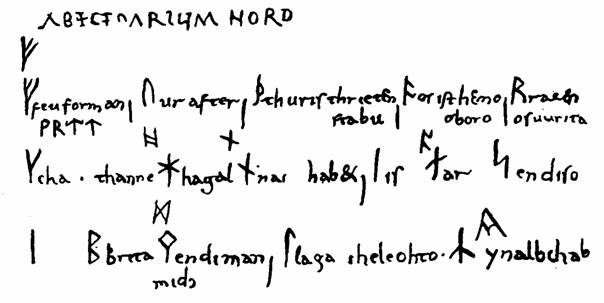 ABECEDARIUM NORD
ᚠ
ᚠ feu forman, ᚢ ur after, ᚦ thuris thriten ᚬ os ist himo, ᚱ rat en
stabu, oboro os uurita
ᚺ ᚾ
ᚴ cha . thanne ᚼ hagal ᚾ nau habet, ᛁ is ᛅ ar ᛋ endi so
ᛁ ᛒ brica ᛘ endi man, ᛚ laga the leohto . ᛦ yr al bihab
midi